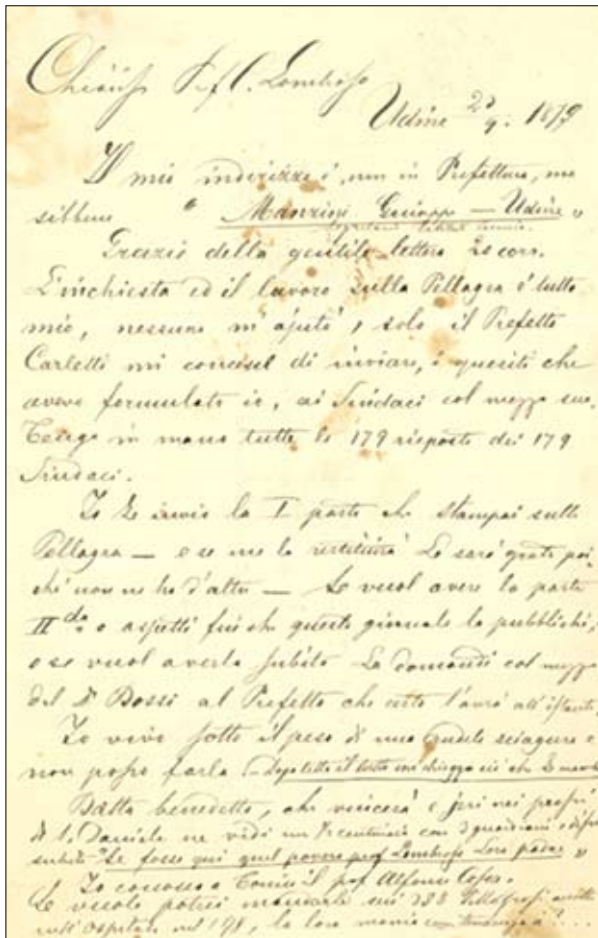 Chiariss Prof C. Lombroso
Udine 23/9. 1879
Il mio indirizzo è, non in Prefettura, ma
sibbene " Manzini Giuseppe — Udine "
Grazie della gentile lettera 20 corr.
L'inchiesta ed il lavoro sulla Pellagra è tutto
mio, nessuno m'ajutò, solo il Prefetto
Carletti mi di inviare, i quesiti che
avevo formulato io, ai Sindaci col mezzo suo.
Tengo in mano tutte le 179 risposte dei 179
Sindaci.
Io Le invio la I parte che stampai sulla
Pellagra — e se me la restituirà Le sarò grato poi
chè non ne ho d'altre — Se vuol avere la parte
II da o aspetti finchè questo giornale la pubblichi,
o se vuol averla subito La domandi col mezzo
del Dr Dossi al Prefetto che certo l'avrà all'istante.
Io vivo sotto il peso di una crudele sciagura e
non posso farla
Batta benedetto, che vincerà e jeri nei pressi
di S. Daniele ne vidi un con 3 guardiani e
subito "Se fosse qui quel povero prof Lombroso
Io conosco a Torino il prof Alfonso Cossa.
Se vuole potrei mandarle
nell'Ospitale nel 178, la loro mania con tendenza a ...